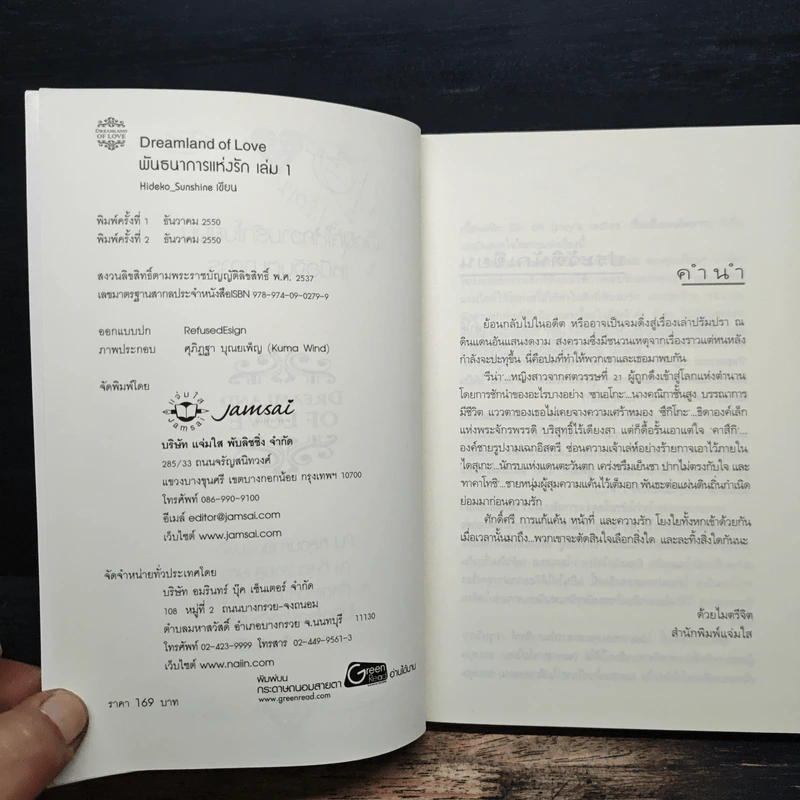 DREAMLAND
OF LOVE
Dreamland of Love
พันธนาการแห่งรัก เล่ม 1
Hideko_Sunshine เขียน
พิมพ์ครั้งที่ 1 ธันวาคม 2550
พิมพ์ครั้งที่ 2 ธันวาคม 2550
สงวนลิขสิทธิ์ตามพระราชบัญญัติลิขสิทธิ์ พ.ศ. 2537
เลขมาตรฐานสากลประจำหนังสือISBN 978-974-09-0279-9
ออกแบบปก RefusedEsign
ภาพประกอบ ศุภิฏฐา บุณยเพ็ญ (Kuma Wind)
จัดพิมพ์โดย
แจ่มใส
Jamsai
Jamsai
บริษัท แจ่มใส พับลิชชิ่ง จำกัด
285/33 ถนนจรัญสนิทวงศ์
แขวงบางขุนศรี เขตบางกอกน้อย กรุงเทพฯ 10700
โทรศัพท์ 086-990-9100
อีเมล์ editor@jamsai.com
เว็บไซต์ www.jamsai.com
จัดจำหน่ายทั่วประเทศโดย
บริษัท อมรินทร์ บุ๊ค เซ็นเตอร์ จำกัด
108 หมู่ที่ 2 ถนนบางกรวย-จงถนอม
ตำบลมหาสวัสดิ์ อำเภอบางกรวย จ.นนทบุรี 11130
โทรศัพท์ 02-423-9999 โทรสาร 02-449-9561-3
เว็บไซต์ www.naiin.com
พิมพ์บน
กระดาษถนอมสายตา Green Read อ่านได้นาน
www.greenread.com
ราคา 169 บาท
คำนำ
ย้อนกลับไปในอดีต หรืออาจเป็นจมดิ่งสู่เรื่องเล่าปรัมปรา ณ
ดินแดนอันแสนงดงาม สงครามซึ่งมีชนวนเหตุจากเรื่องราวแต่หนหลัง
กำลังจะปะทุขึ้น นี่คือปมที่ทำให้พวกเขาและเธอมาพบกัน
'รีน่า'...หญิงสาวจากศตวรรษที่ 21 ผู้ถูกดึงเข้าสู่โลกแห่งตำนาน
โดยการชักนำของอะไรบางอย่าง 'ซาเอโกะ'...นางคณิกาชั้นสูง บรรณาการ
มีชีวิต แววตาของเธอไม่เคยจางความเศร้าหมอง 'ซึกิโกะ'...ธิดาองค์เล็ก
แห่งพระจักรพรรดิ บริสุทธิ์ไร้เดียงสา แต่ก็ดื้อรั้นเอาแต่ใจ 'คาสึกิ'...
องค์ชายรูปงามเฉกอิสตรี ซ่อนความเจ้าเล่ห์อย่างร้ายกาจเอาไว้ภายใน
'ไดสุเกะ'...นักรบแห่งแดนตะวันตก เคร่งขรึมเย็นชา ปากไม่ตรงกับใจ และ
'ทาคาโทชิ'...ชายหนุ่มผู้สุมความแค้นไว้เต็มอก พันธะต่อแผ่นดินถิ่นกำเนิด
ย่อมมาก่อนความรัก
ศักดิ์ศรี การแก้แค้น หน้าที่ และความรัก โยงใยทั้งหกเข้าด้วยกัน
เมื่อเวลานั้นมาถึง...พวกเขาจะตัดสินใจเลือกสิ่งใด และละทิ้งสิ่งใดกันนะ
ด้วยไมตรีจิต
สำนักพิมพ์แจ่มใส